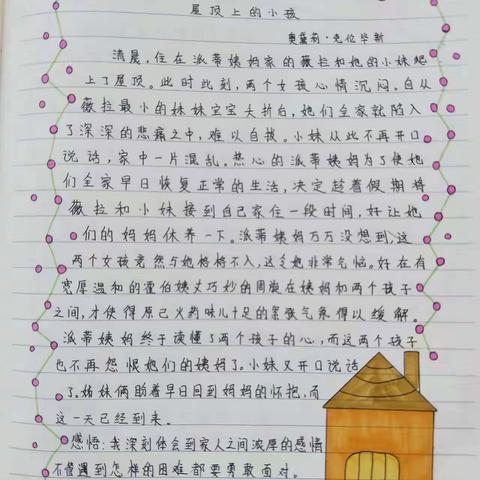 屋顶上的小孩
奥黛莉·克伦毕斯
清晨，住在派蒂姨妈家的薇拉和她的小妹爬
上了屋顶。此时此刻，两个女孩心情沉闷。自从
薇拉最小的妹妹宝宝夭折后，她们全家就陷入
了深深的悲痛之中，难以自拔。小妹从此不再开口
说话，家中一片混乱。热心的派蒂姨妈为了使她
们全家早日恢复正常的生活，决定趁着假期将
薇拉和小妹接到自己家住一段时间，好让她
们的妈妈休养一下。派蒂姨妈万万没想到，这
两个女孩竟然与她格格不入，这令她非常气恼。好在有
宽厚温和的霍伯姨丈巧妙的周旋在姨妈和两个孩子
之间，才使得原已火药味儿十足的紧张气氛得以缓解。
派蒂姨妈终于读懂了两个孩子的心，而这两个孩子
也不再怨恨她们的姨妈了。小妹又开口说话
了。姊妹俩盼着早日回到妈妈的怀抱，而
这一天已经到来。
感悟：我深刻体会到家人之间浓厚的感情，
不管遇到怎样的困难都要勇敢面对。